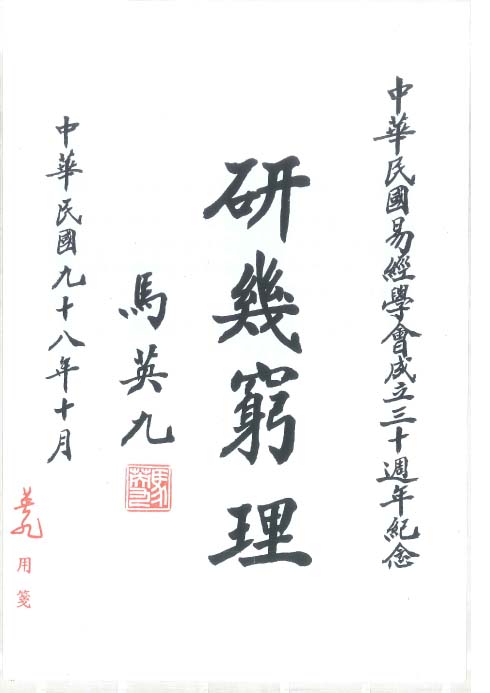 中華民國易經學會成立三十週年紀念
研幾窮理
馬英九
中華民國九十八年十月
英九
用箋